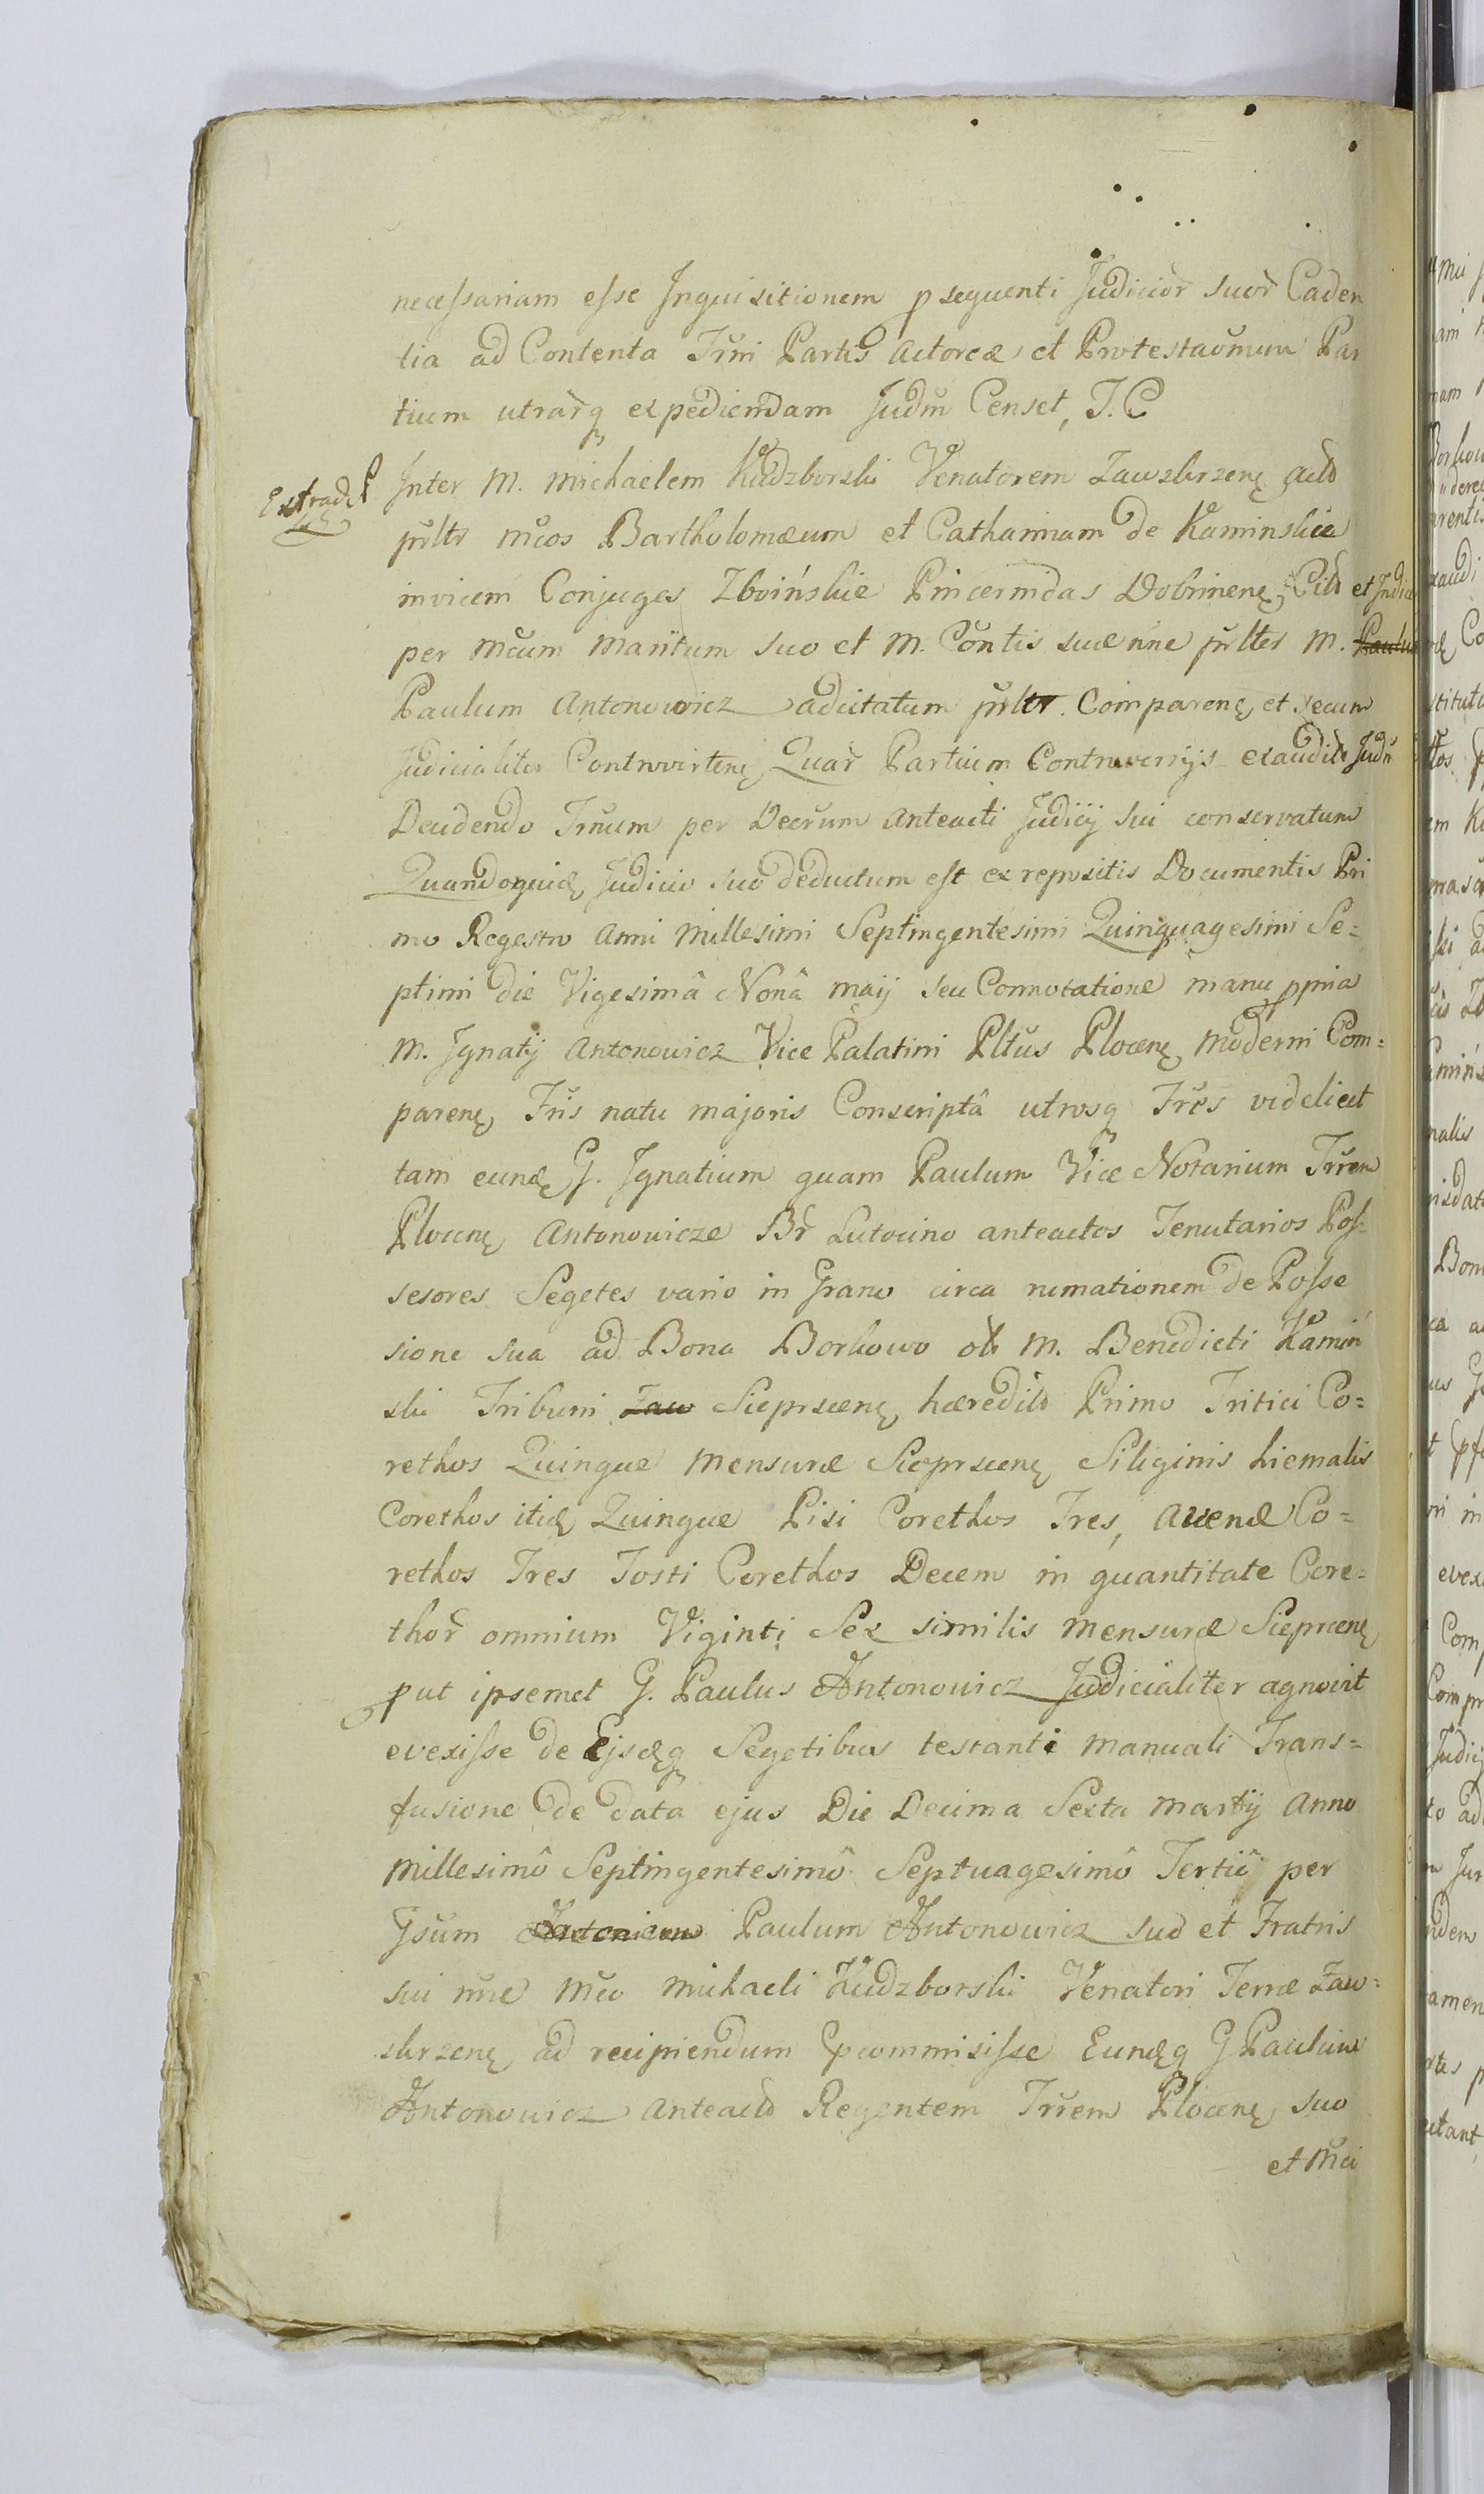 necessariam esse Inquisitionem p sequenti Judicior̃ suor̃ Caden
tia ad Contenta Trm̃i Partis Actoreæ et Protestaõnum Par
tium utrar̃q expediendam Judm̃ Censet, T. C
Extradet
Inter M. Michaelem Kudzborski Venatorem Zawskrzenę Actõ
pr̃ltr Mc̃os Bartholomæum et Catharinam de Kaminskie
invicem Conjuges Zboińskie Pincernidas Dobrinenę, Citõ et Indic
per Mc̃um Maritum suo et M. Cõntis suæ nñe pr̃lter M. Paulu
Paulum Antonowicz adcitatum pr̃ltr. Comparenę et secum
Judicialiter Controvertenę Quar̃ Partium Controversijs exaudits Judm̃
Decidendo Trm̃um per Decr̃um Anteacti Judicij sui conservatum
Quandoquidę Judicio suo deductum est ex repositis Documentis Pri
mo Regestro Anni Millesimi Septingentesimi Quinquagesimi Se=
ptimi die Vigesimâ Nonâ Maij seu Connotatione manu ppria
M. Ignatij Antonowicz Vice Palatini Pltũs Plocenę moderni Com=
parenę Fr̃is natu majoris Conscriptâ utrosq Fr̃es videlicet
tam eundę G. Ignatium quam Paulum Vice Notarium Tr̃rem
Plocenę Antonowicze Br̃ Lutocino anteactos Tenutarios Pos=
sesores Segetes vario in Grano circa rumationem de Posse
sione sua ad Bona Borkowo olt̃ M. Benedicti Kamiń
ski Tribuni Zaw Sieprscenę hæreditõ Primo Tritici Co=
rethos Quinque Mensuræ Sieprscenę Siliginis hiemalis
Corethos itidę Quinque Pisi Corethos Tres, Avenæ Co=
rethos Tres Tosti Corethos Decem in quantitate Core=
thor̃ omnium Viginti Sex similis Mensuræ Sieprcenę
p ut ipsemet G. Paulus Antonowicz Judicialiter agnovit
evexisse de Ejsdęq Segetibus testanti Manuali Trans=
fusione de data ejus Die Decima Sexta Martij Anno
Millesimô Septingentesimô Septuagesimô Tertiô per
Ipsum Antonium Paulum Antonowicz suo et Fratris
sui nñe Mc̃o Michaeli Kudzborski Venatori Terræ Zaw=
skrzenę ad recipiendum pcommisisse Eundęq G Paulum
Antonowicz Anteactõ Regentem Tr̃rem Plocenę suo
et Mc̃i